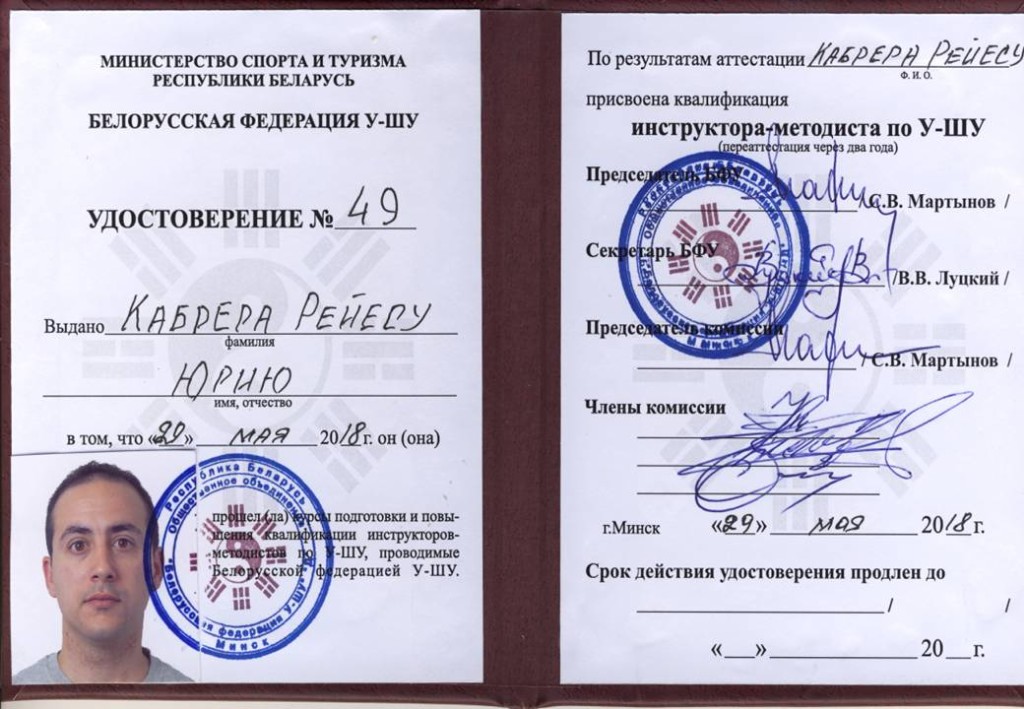 МИНИСТЕРСТВО СПОРТА И ТУРИЗМА
РЕСПУБЛИКИ БЕЛАРУСЬ
БЕЛОРУССКАЯ ФЕДЕРАЦИЯ У-ШУ
УДОСТОВЕРЕНИЕ № 49
Выдано КАБРЕРА РЕЙЕСУ
фамилия
ЮРИЮ
имя, отчество
в том, что «29» мая 2018г. он (она)
прошел (ла) курсы подготовки и повы-
шения квалификации инструкторов-
методистов по У-ШУ, проводимые
Белорусской федерацией У-ШУ.
Республика Беларусь
Общественное объединение
"Белорусская федерация У-ШУ"
Минск
По результатам аттестации КАБРЕРА РЕЙЕСУ
Ф. И. О.
присвоена квалификация
инструктора-методиста по У-ШУ
(переаттестация через два года)
Председатель БФУ
С.В. Мартынов /
Секретарь БФУ
/В.В. Луцкий /
Председатель комиссии
/С.В. Мартынов /
Члены комиссии
г.Минск «29» мая 2018г.
Срок действия удостоверения продлен до
/ /
«__» 20__г.